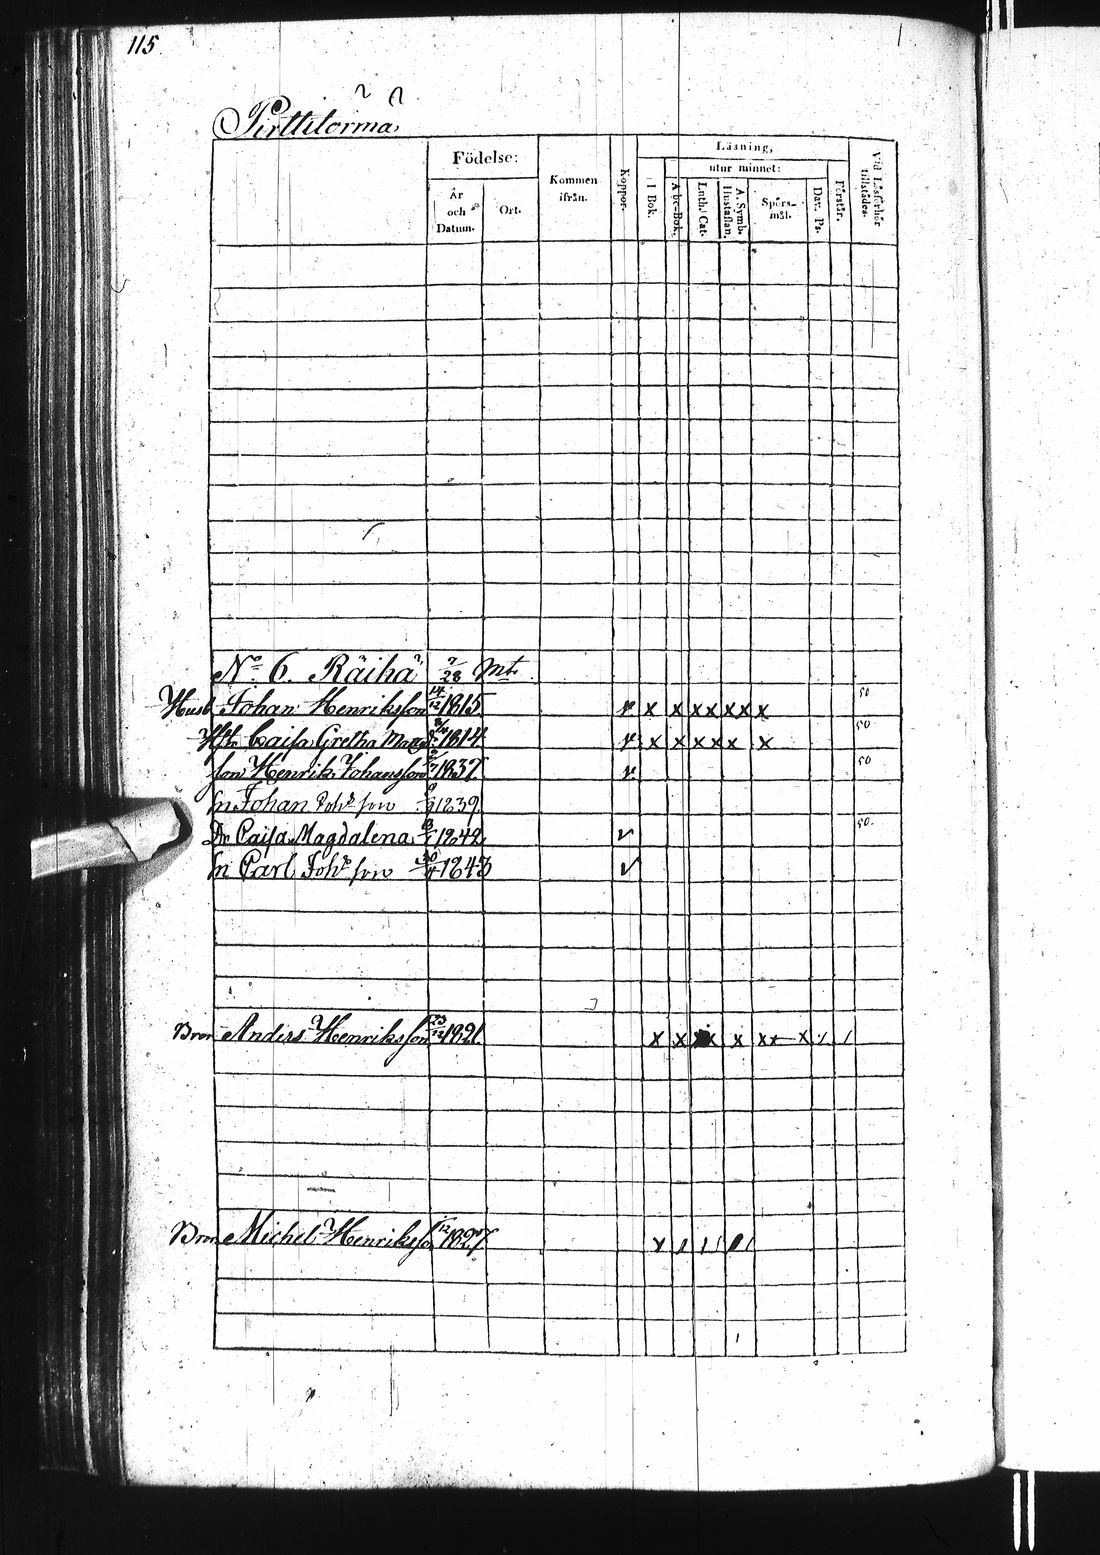 115
Pirttitorma
Födelse:
År och Datum.
Ort.
Kommen ifrån.
Koppor.
Läsning,
utur minnet:
I Bok.
Abc-Bok.
Luth. Cat.
A. Symb. Hustaflan.
Spörs-mål.
Dav. Ps.
Förstår.
Vid Läsförhör tillstädes.
No 6. Räihä 7/28 Mt.
Husb. Johan Henriksson 14/12 1815 v x x x x x x x 50
Hst. Caisa Gretha 1814 v x x x x x x 50
son Henrik Johansson 1837 v 50
Sn Johan Joh. son 1839
Dr Caisa Magdalena 1842 v 50.
Sn Carl Joh. son 30/4 1843 v
Bror Anders Henriksson 23/12 1821 x x x x x x x
Bror Michel Henriksson 1827